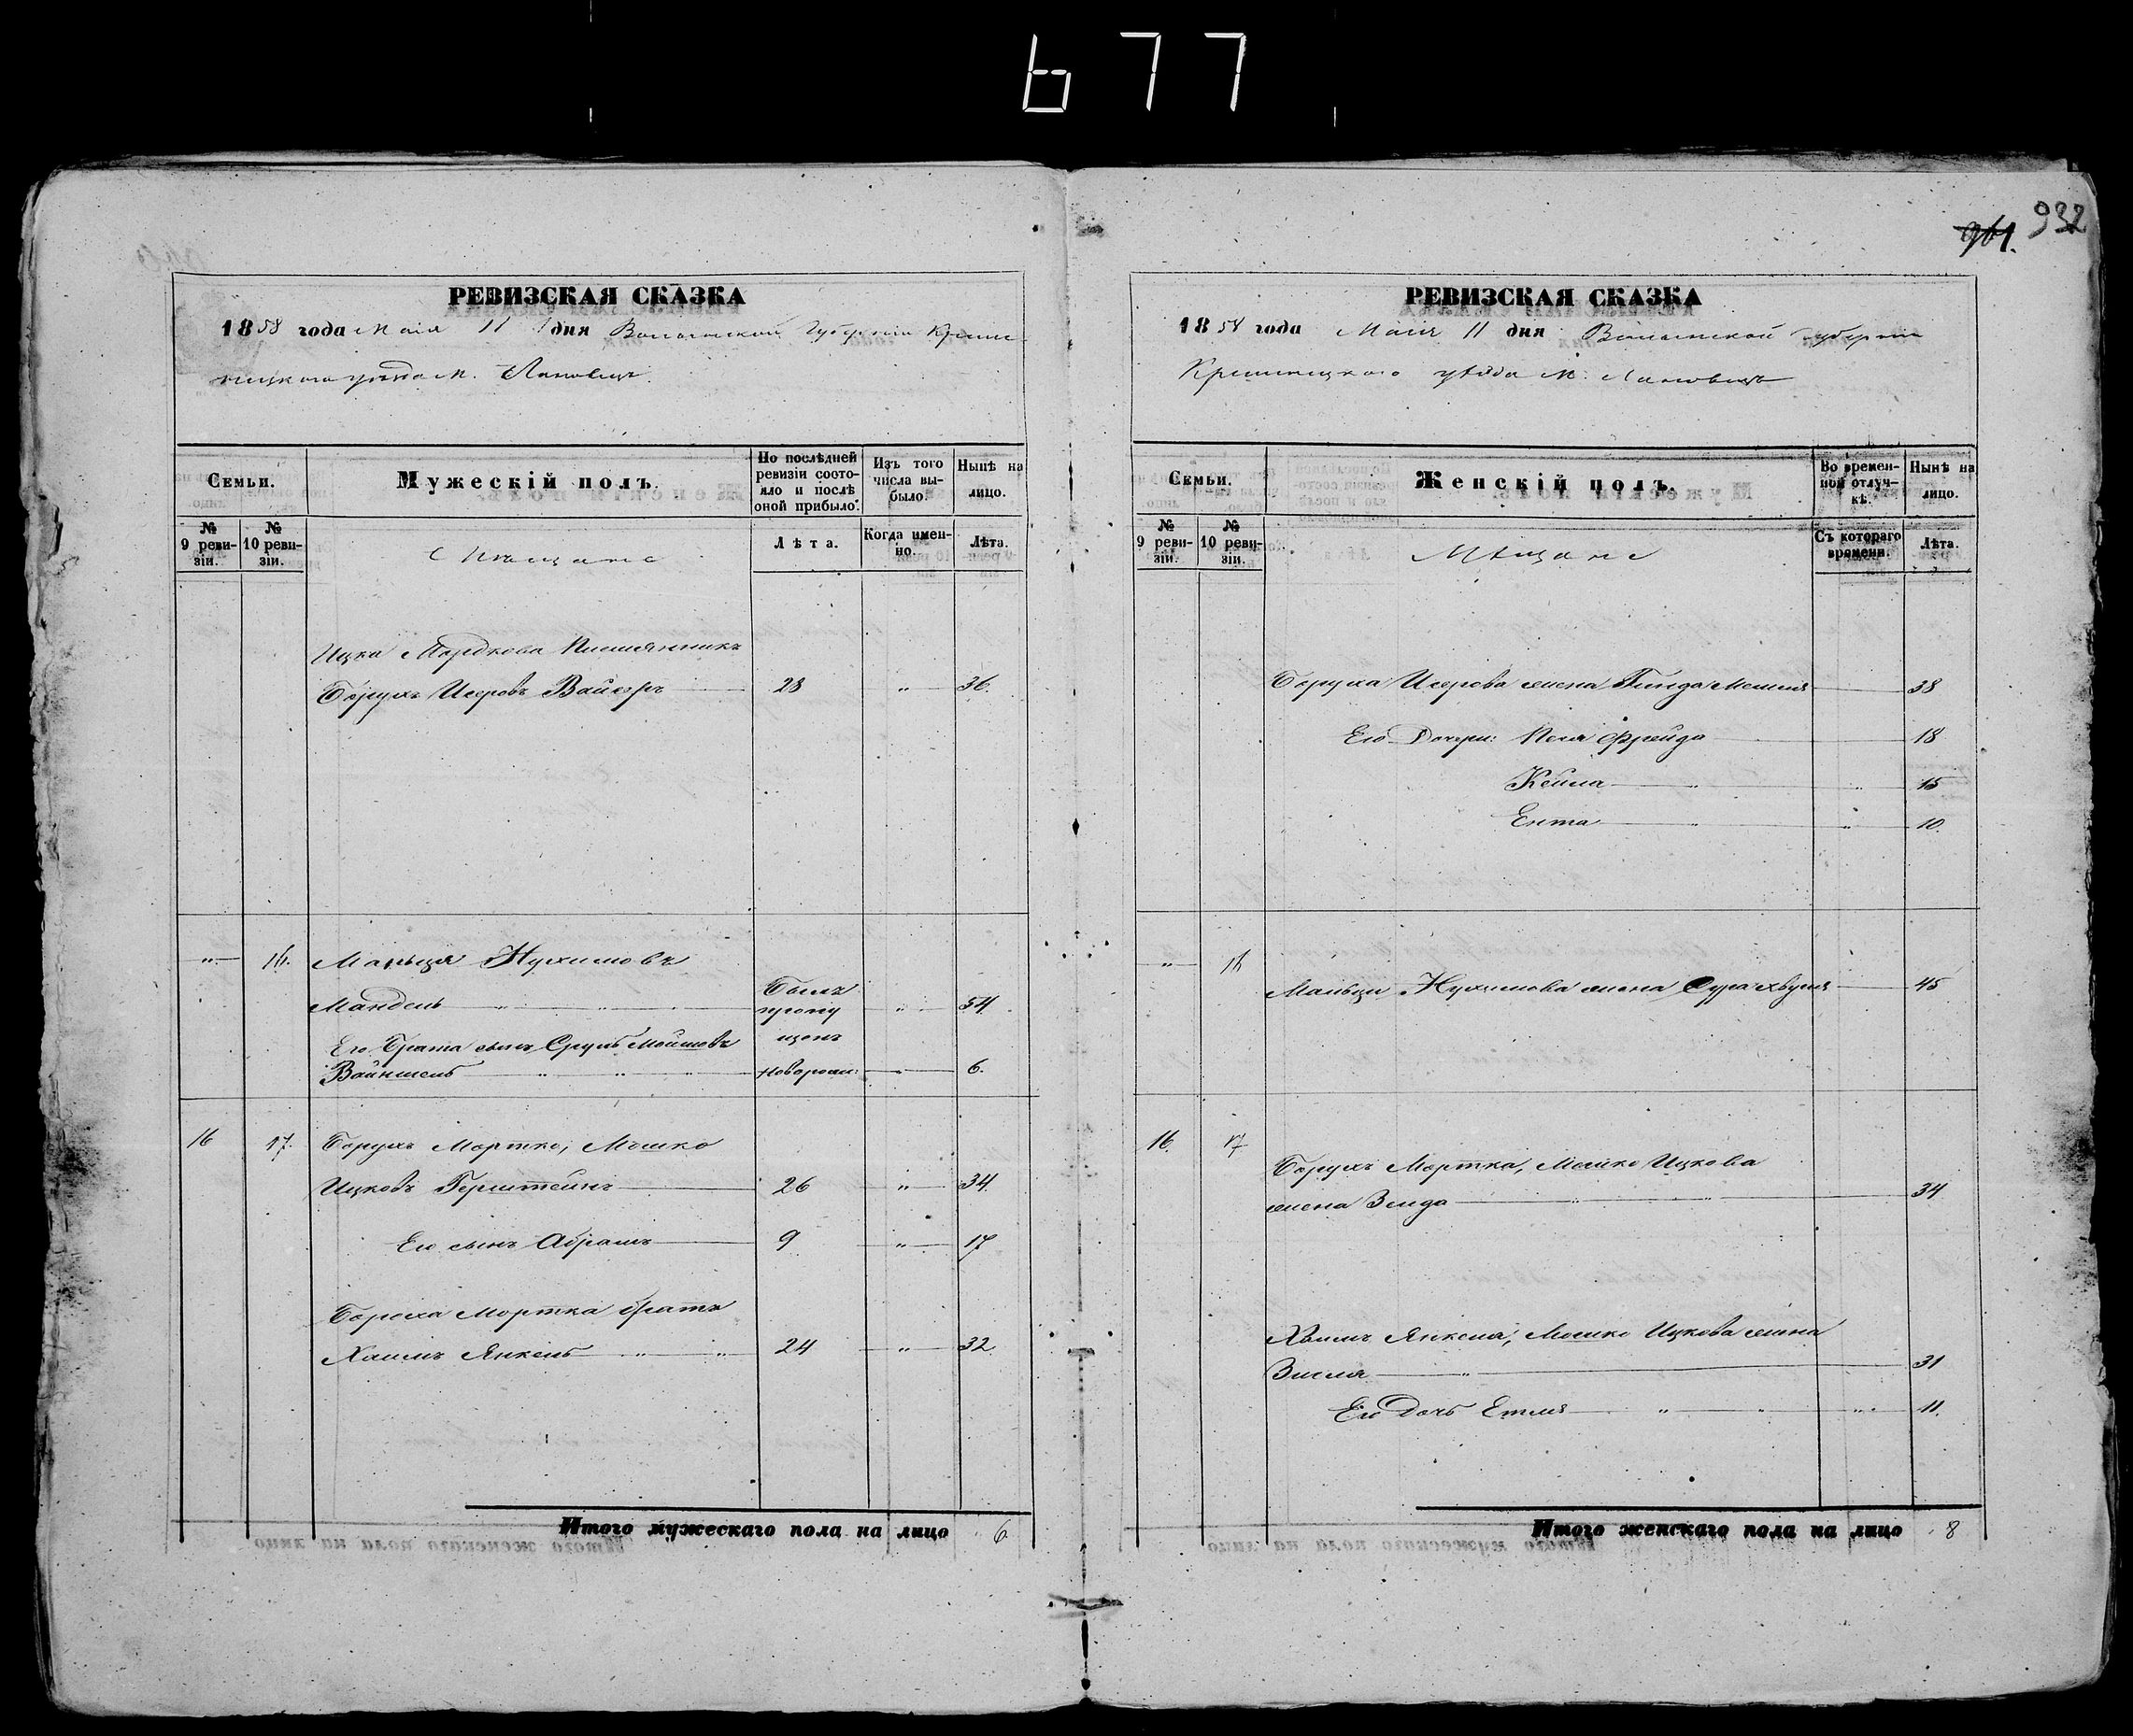 677
961. 932
РЕВИЗСКАЯ СКАЗКА
1858 года Маія 11 дня Волынской Губерніи Креме
нецкого уезда м. Лановецъ
Семьи.
Мужескій полъ.
По послѣдней ревизіи состояло и послѣ оной прибыло.
Изъ того числа выбыло.
Нынѣ на лицо.
№ 9 ревизіи.
№ 10 ревизіи.
Мещане
Лѣта.
Когда именно.
Лѣта.
Ицка Мордкова
Борухъ Исеровъ 28 " 36.
" 16. Маньця Нухимовъ
Мандель " " Былъ пропущенъ " 54.
Его Брата сынъ Сруль Мошковъ
" " " новорож: 6.
16 17. Борухъ Мортко, Мошко
Ицковъ Герштейнъ 26 " 34.
Его сынъ Абрамъ 9 " 17
Боруха Мортка братъ
Хаимъ Янкель " " 24 " 32.
Итого мужескаго пола на лицо 6
РЕВИЗСКАЯ СКАЗКА
1858 года Маія 11 дня Волынской Губерніи
Кременецкого уѣзда м. Лановецъ
Семьи.
Женскій полъ.
Во временной отлучкѣ.
Нынѣ на лицо.
№ 9 ревизіи.
№ 10 ревизіи.
Мѣщане
Съ котораго времени.
Лѣта.
Боруха Исерова жена 38
Его Дочери: Песя Фрейда 18
Кейла " " 15
Ента " " 10.
" 16
Маньци Нухимова жена Сура 45
16. 17
Борухъ Мортка, Мошко Ицкова
жена Зелда " " 34
Хаимъ Янкеля, Мошко Ицкова жена
" 31
Его Дочь Етля " " " 11.
Итого женскаго пола на лицо 8